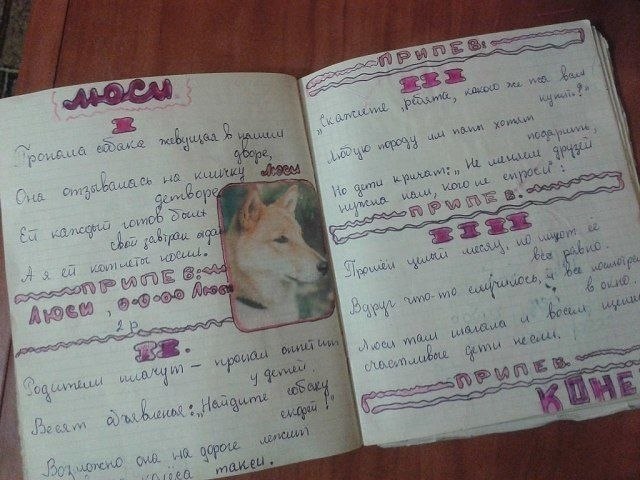 ЛЮСИ
I
Пропала собака живущая в нашем
дворе,
Она отзывалась на кличку Люси
детворе
Ей каждый готов был
свой завтрак отдать
А я ей котлеты носил.
ПРИПЕВ:
ЛЮСИ, О-О-О-ОО Люси
2 р.
II.
Родители плачут – пропал аппетит
у детей.
Весят объявленья: „Найдите собаку
скорей!"
Возможно она на дороге лежит
колёса такси.
ПРИПЕВ:
III
„Скажите, ребята, какого же пса вам
купить?"
Любую породу им папы хотят
подарить,
Но дети кричат: „Не меняем друзей
нужна нам, кого не спроси":
ПРИПЕВ:
IIII
Прошёл целый месяц, но ищут её
всё равно.
Вдруг что-то случилось, и все посмотрели
в окно.
Люси там шагала и восем щен
счастливые дети несли.
ПРИПЕВ
КОНЕ